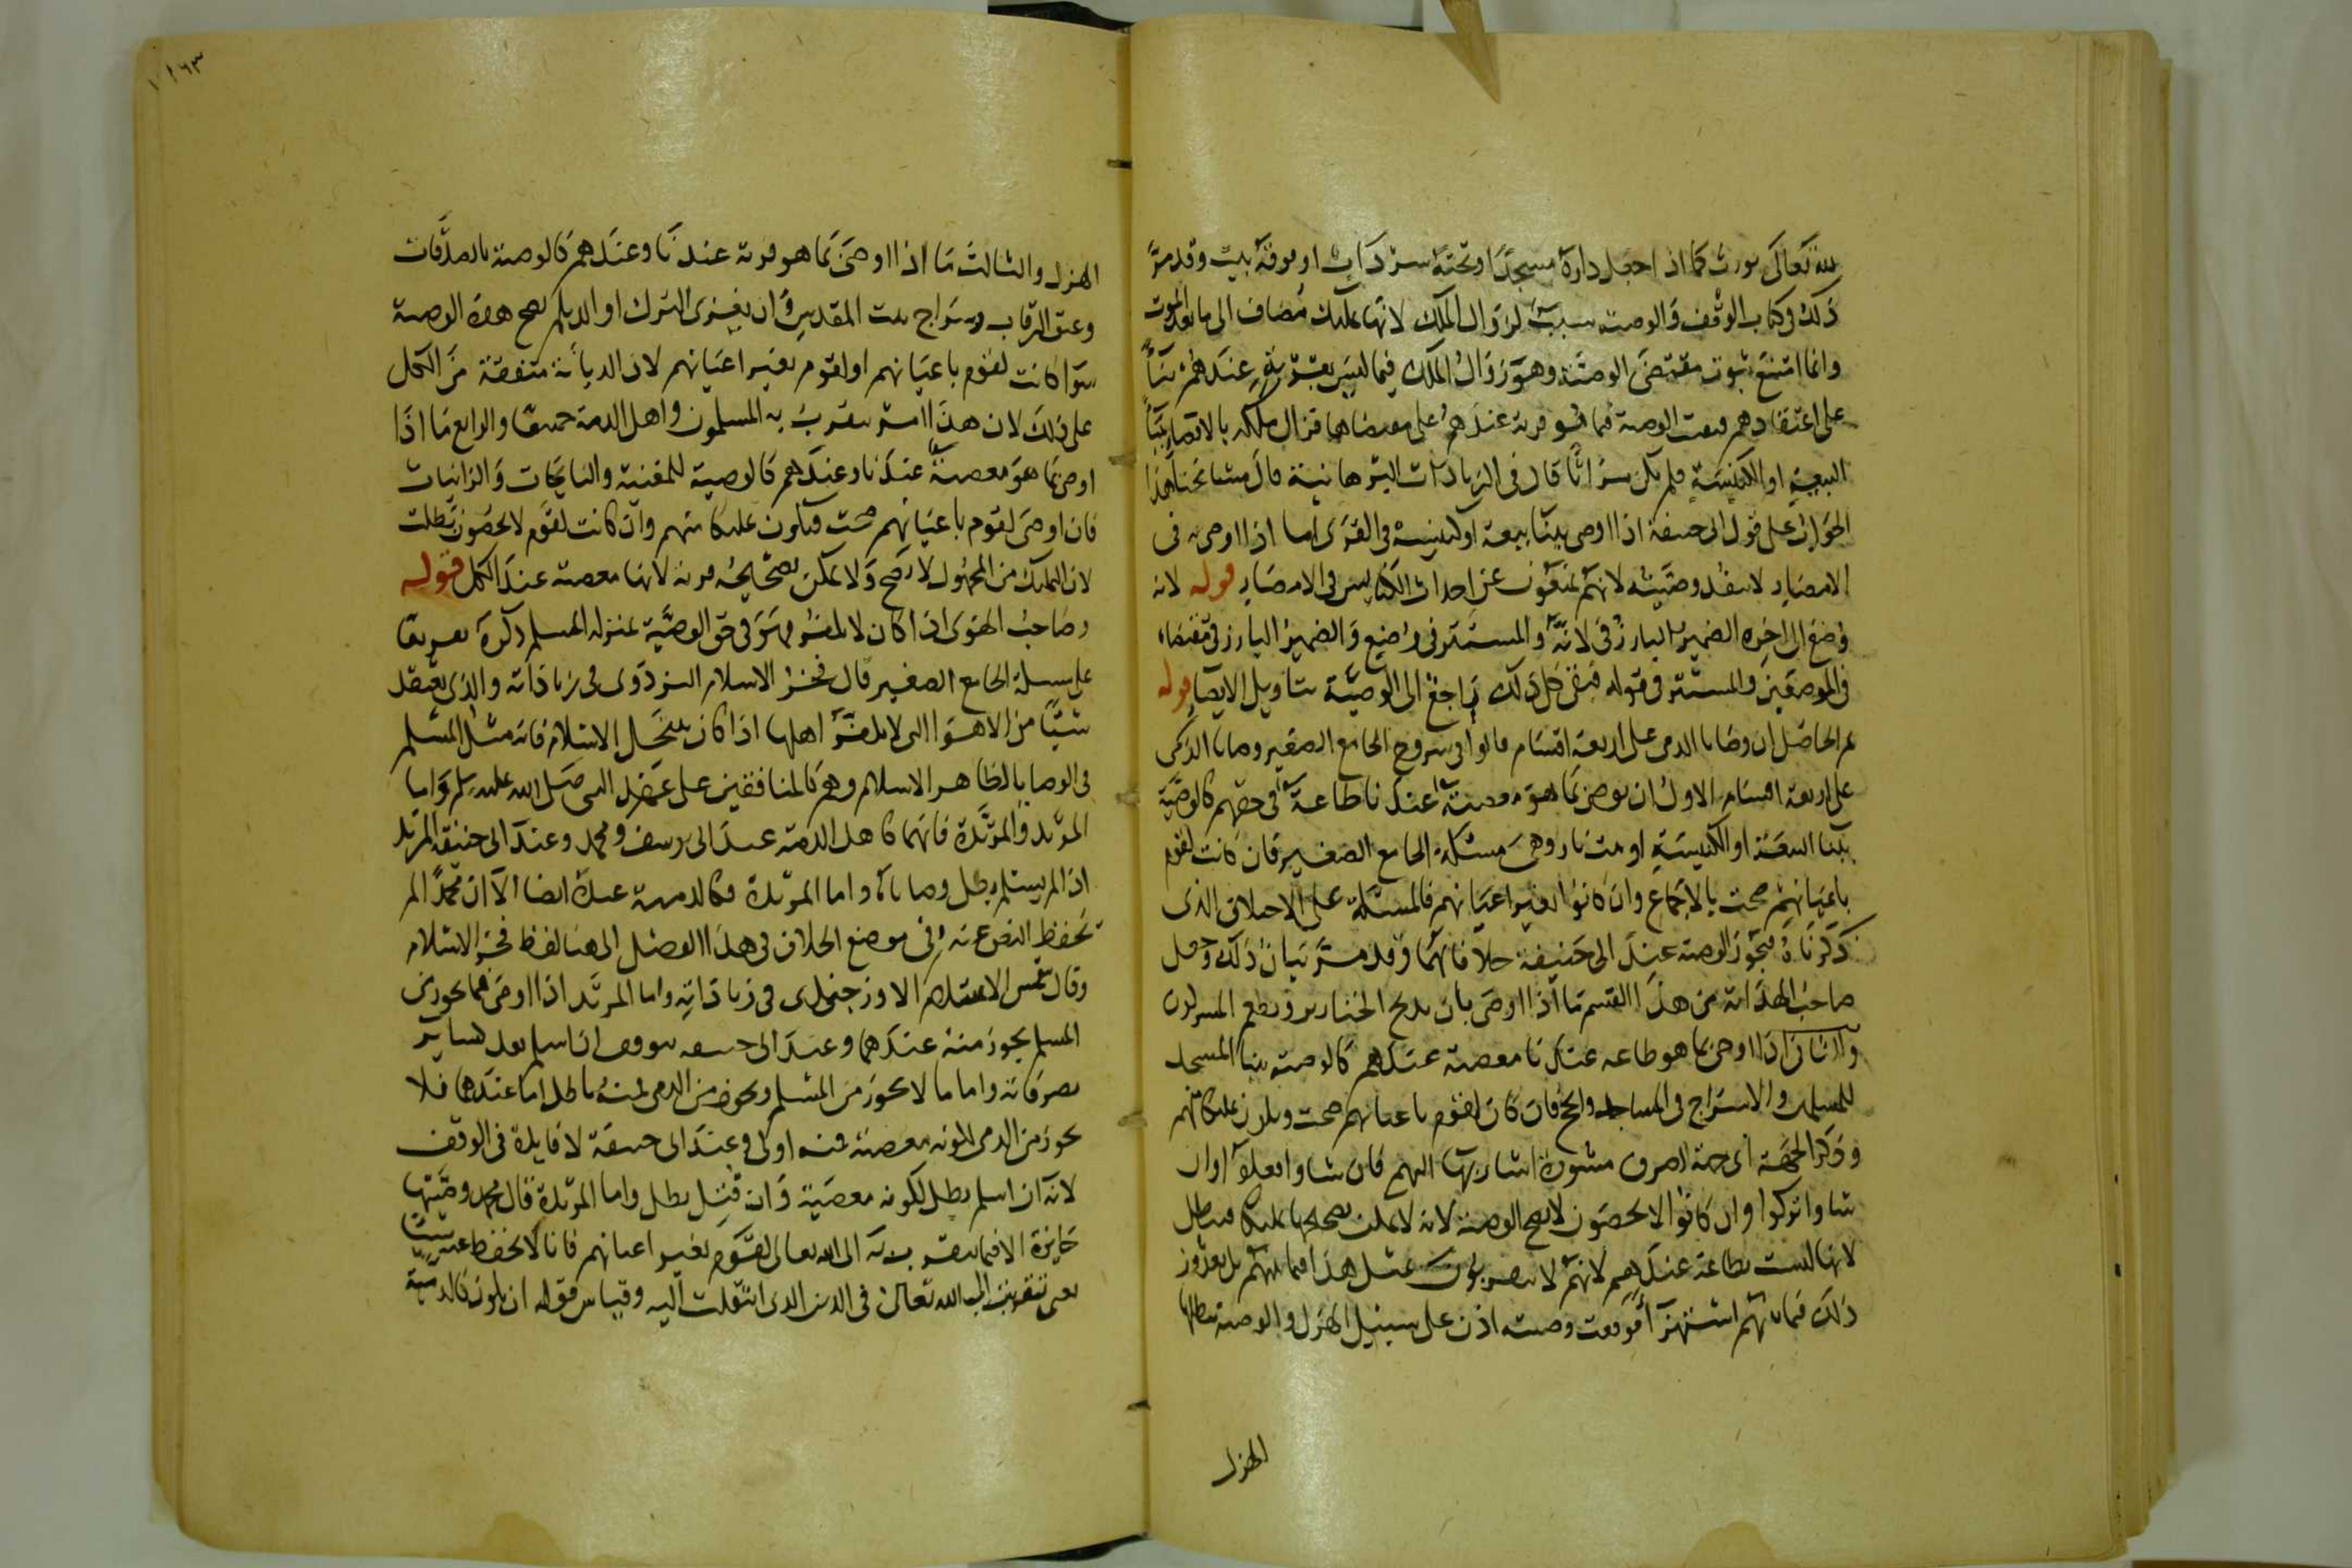 لله تعالى يورث كما اذا جعل داره مسجدا وتحته سرداب او فوقه بيت وقد مر
ذلك في كتاب الوقف والوصية سبب لزوال الملك لانها تمليك مضاف الى ما بعد الموت
وانما امتنع ثبوت مقتضى الوصية وهو زوال الملك فيما ليس بقربة عندهم بناء
على اعتقادهم فبقيت الوصية فيما هو قربة عندهم على مقتضاها فزال ملكه بالايصاء ببناء
البيعة او الكنيسة فلم يكن ميراثا قال في الزيادات البرهانية قال مشايخنا هذا
الجواب على قول ابي حنيفة اذا اوصى ببناء بيعة او كنيسة في القرى اما اذا اوصى به في
الامصار لا تنفذ وصيته لانهم يمنعون عن احداث الكنايس في الامصار قوله لانه
وضع الى اخره الضمير البارز في لانه والمستتر في وضع والضمير البارز في مقتضاه
في الموضعين والمستتر في قوله فبقي كل ذلك راجع الى الوصية بتاويل الايصاء قوله
ثم الحاصل ان وصايا الذمي على اربعة اقسام قالوا في شروح الجامع الصغير وصايا الذمي
على اربعة اقسام الاول ان يوصي بما هو معصية عندنا طاعة في حقهم كالوصية
ببناء البيعة او الكنيسة او بيت نار وهي مسئلة الجامع الصغير فان كانت لقوم
باعيانهم صحت بالاجماع وان كانوا بغير اعيانهم فالمسئلة على الاختلاف الذي
ذكرناه فتجوز الوصية عند ابي حنيفة خلافا لهما وقد مر بيان ذلك وجعل
صاحب الهداية من هذا القسم ما اذا اوصى بان يذبح الخنازير ويطعم المشركون
والثاني اذا اوصى بما هو طاعه عندنا معصية عندهم كالوصية ببنا المسجد
للمسلمين والاسراج في المساجد والحج فان كان لقوم باعيانهم صحت ويكون تمليكا منهم
وذكر الجهة اي جهة الصرف مشورة اشار بها اليهم فان شاوا فعلوا وان
شاوا تركوا وان كانوا لا يحصون لا يصح الوصية لانه لا يمكن تصحيحها تمليكا فيبطل
لانها ليست بطاعة عندهم لانهم لا يتقربون بمثل هذا فيما بينهم بل يعدون
ذلك فيما بينهم استهزآ فوقعت وصيته اذن على سبيل الهزل والوصية يبطلها
الهزل
١١٦٣
الهزل والثالث ما اذا اوصى بما هو قربة عندنا وعندهم كالوصية بالصدقات
وعتق الرقاب وسراج بيت المقدس وان يغزى الترك او الديلم يصح هذه الوصية
سوا كانت لقوم باعيانهم او لقوم بغير اعيانهم لان الديانة متفقة من الكل
على ذلك لان هذا امر يتقرب به المسلمون واهل الذمة جميعا والرابع ما اذا
اوصى بما هو معصية عندنا وعندهم كالوصية للمغنية والنايحات والزانيات
فان اوصى لقوم باعيانهم صحت فيكون تمليكا منهم وان كانت لقوم لا يحصون بطلت
لان التمليك من المجهول لا يصح ولا يمكن تصحيحه قربة لانها معصية عند الكل قوله
وصاحب الهوى اذا كان لا يكفر فهو في حق الوصية بمنزلة المسلم ذكره تفريعا
على مسئلة الجامع الصغير قال فخر الاسلام البزدوي في زياداته والذي يعتقد
شيئا من الاهوا التي لا يكفر اهلها اذا كان ينتحل الاسلام فانه مثل المسلم
في الوصايا لظاهر الاسلام وهم كالمنافقين على عهد النبي صلى الله عليه وسلم واما
المرتد والمرتدة فانهما كاهل الذمة عند ابي يوسف ومحمد وعند ابي حنيفة المرتد
اذا لم يسلم بطل وصاياه واما المرتدة فكالذمية عنده ايضا الا ان محمدا لم
يحفظ النص عنه في موضع الخلاف في هذا الفصل الى هنا لفظ فخر الاسلام
وقال شمس الاسلام الاوزجندي في زياداته واما المرتد اذا اوصى فما يجوز من
المسلم يجوز منه عندهما وعند ابي حنيفه يتوقف ان اسلم نفذ كساير
تصرفاته واما ما لا يجوز من المسلم ويجوز من الذمي فمنه باطل اما عندهما فلا
يجوز من الذمي لكونه معصية فمنه اولى وعند ابي حنيفة لا فايدة في الوقف
لانه ان اسلم بطل لكونه معصية وان قتل بطل واما المرتدة قال محمد وصيتها
جايزة الا فيما يتقرب به الى الله تعالى لقوم بغير اعيانهم فانا لا نحفظ عنه شيئا
يعني تتقرب الى الله تعالى في الدين الذي انتقلت اليه وقياس قوله ان يكون كالذمية